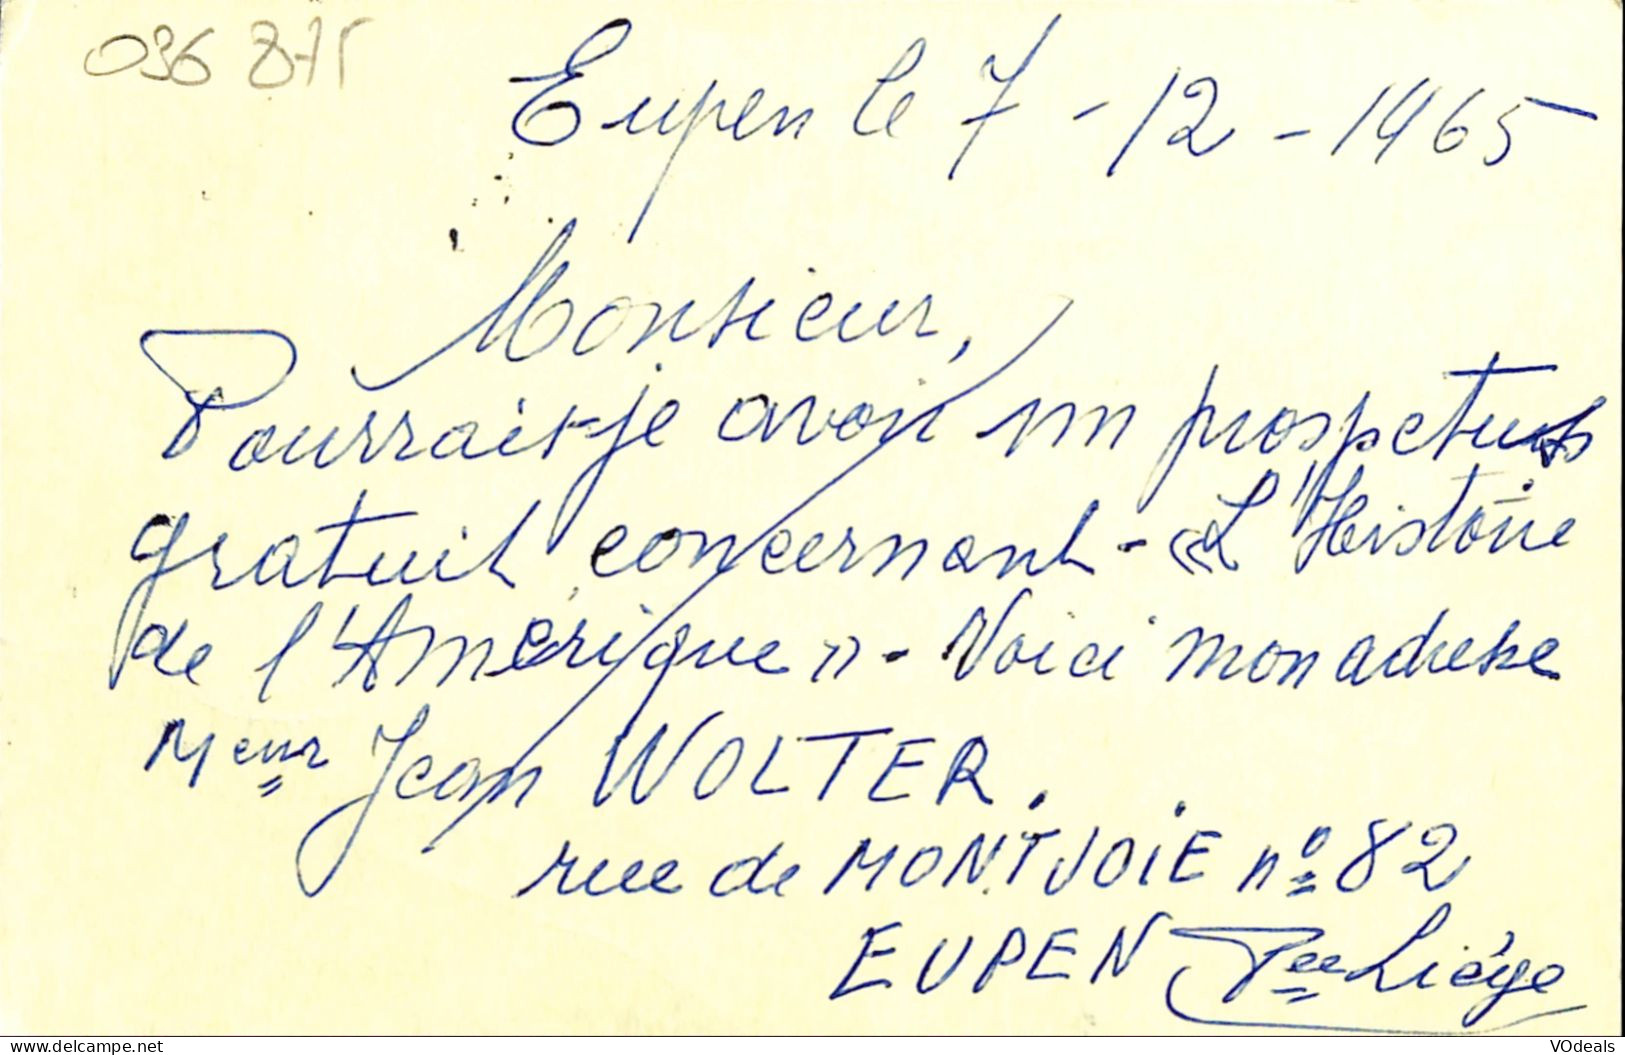 036 875
Eupen le 7 - 12 - 1965
Monsieur,
Pourrait-je avoir un prospectus
gratuit concernant - « L'Histoire
de l'Amérique » - Voici mon adresse
Meur Jean WOLTER.
rue de MONTJOIE nº 82
EUPEN Pce Liège
www.delcampe.net
VOdeals